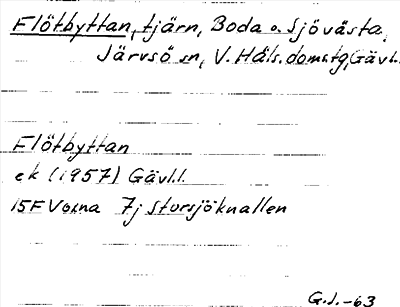 Flötbyttan, tjärn, Boda o. Sjövästa,
Järvsö sn, V. Häls. domstg, Gävl.
Flötbyttan
ek (1957) Gävl.l.
15F Voxna 7j Storsjöknallen
G.J.-63